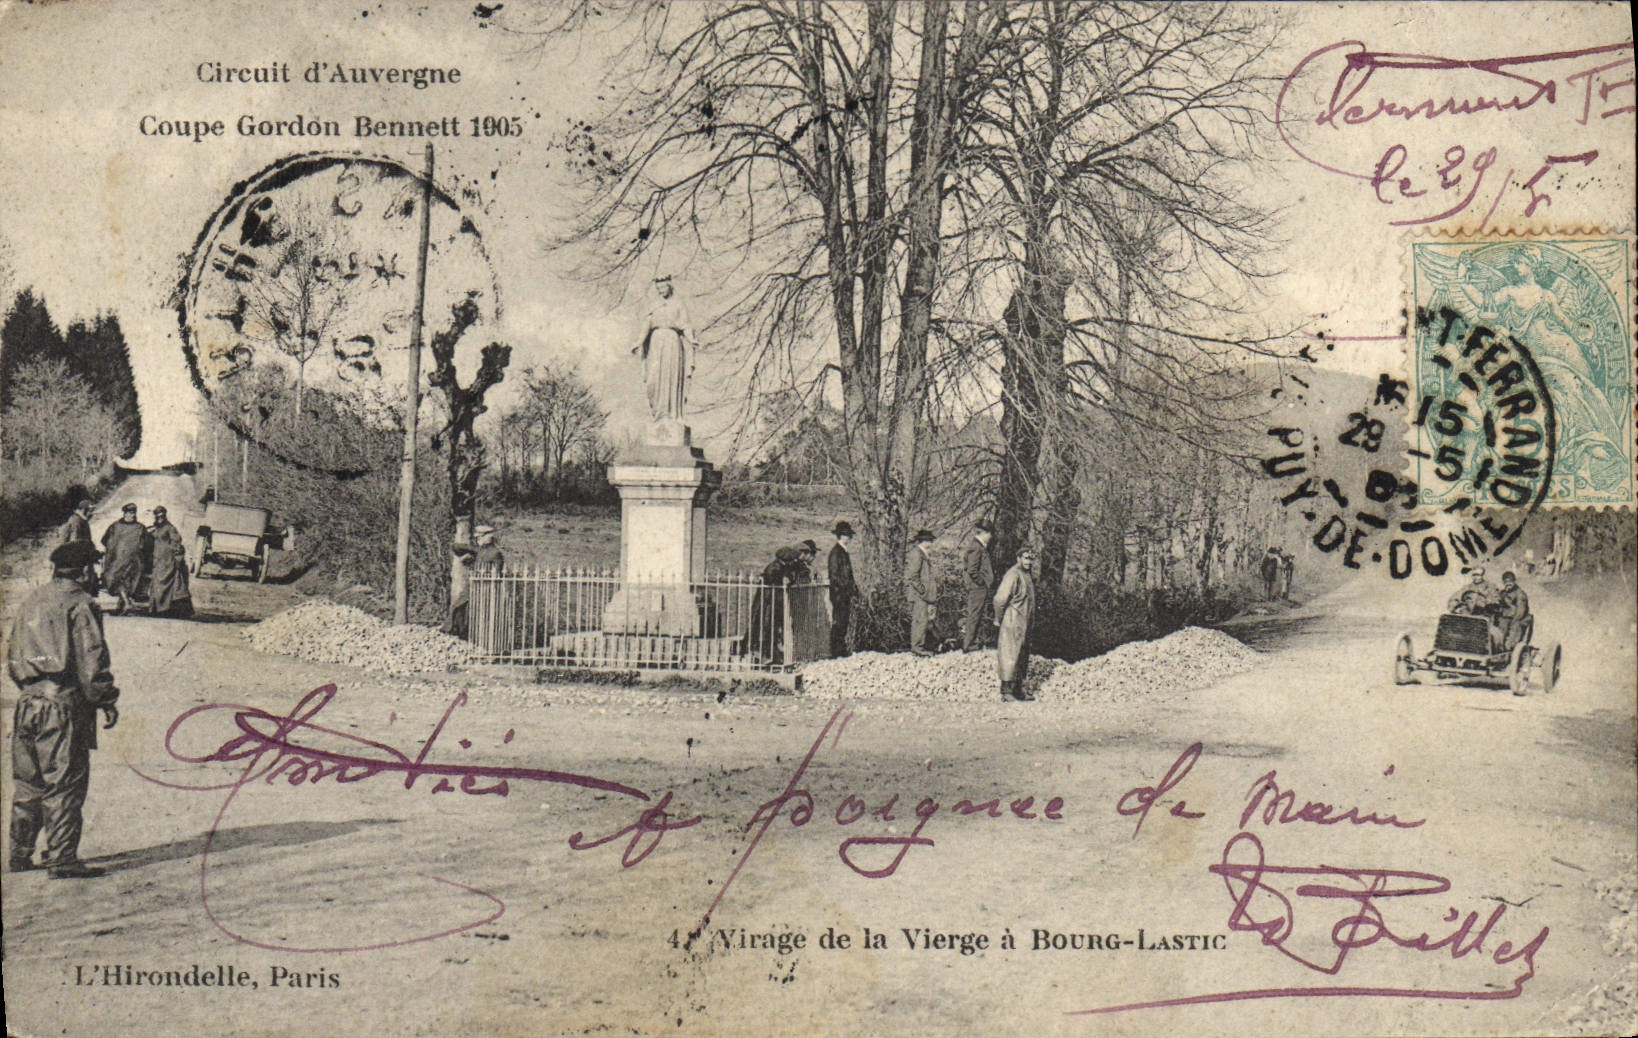 Circuit d'Auvergne
Coupe Gordon Bennett 1905
Clermont Fd
le 29/5
T-FERRAND
PUY-DE-DOME
15
29 -5
05
Amitiés
et poignée de main
Billet
4. Virage de la Vierge à BOURG-LASTIC
L'Hirondelle, Paris